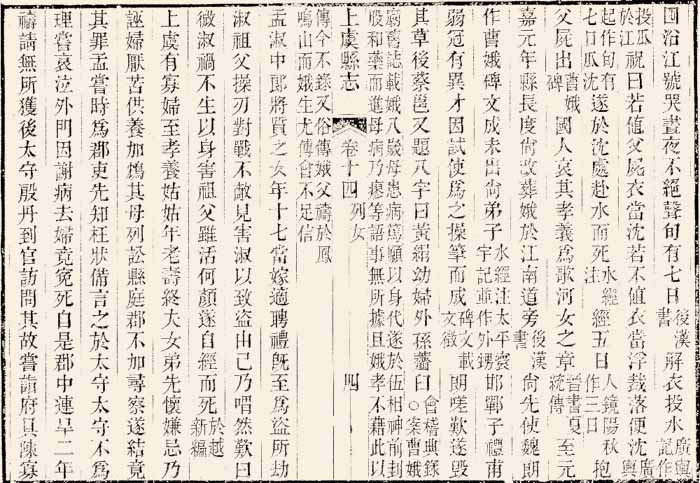 沿江號哭晝夜不絕聲旬有七日後漢書衣投水廣輿記作
投瓜於江祝曰若値父屍衣當沈若不値衣當浮裁落便沈廣輿
記作旬有七日瓜沈遂於沈處赴水而死水經注經五日人鏡陽秋作三日抱
父屍出曹娥碑國人哀其孝義爲歌河女之章晉書夏統傳至元
嘉元年縣長度尙改葬娥於江南道旁後漢書尙先使魏朗
作曹娥碑文成未出尙弟子水經注太平寰宇記並作外甥邯鄲子禮甫
弱冠有異才因試使爲之操筆而成碑文載文徵朗嗟歎遂毀
其草後蔡邕又題八字曰黃絹幼婦外孫虀臼會稽典錄○案曹娥
廟舊誌載娥八歲母患病篤願以身代遂於伍相神前刲股和藥而進母病乃瘳等語事無所據且娥孝不藉此以
上虞縣志 卷十四 列女 四
傳今不錄又俗傳娥父禱於鳳鳴山而娥生尤傅會不足信
孟淑中郞將質之女年十七當嫁適聘禮旣至爲盜所劫
淑祖父操刃對戰不敵見害淑以致盜由己乃喟然歎曰
微淑禍不生以身害祖父雖活何顏遂自經而死於越新編
上虞有寡婦至孝養姑姑年老壽終夫女弟先懷嫌忌乃
誣婦厭苦供養加鴆其母列訟縣庭郡不加尋察遂結竟
其罪孟嘗時爲郡吏先知枉狀備言之於太守太守不爲
理嘗哀泣外門因謝病去婦竟寃死自是郡中連旱二年
禱請無所獲後太守殷丹到官訪問其故嘗詣府具陳寡